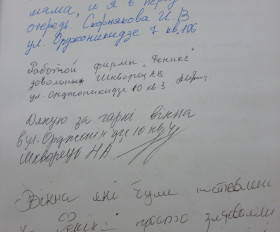 мама, и я в пер
очередь Скорнякова И В
ул. Орджоникидзе 7 кв. 106
Работой фирмы "Феникс"
довольны Шкворец АВ
ул. Орджоникидзе 10 кв 3
Дякую за гарні вікна
вул. Орджон
Шкворець НА
Вікна які були
просто задоволені